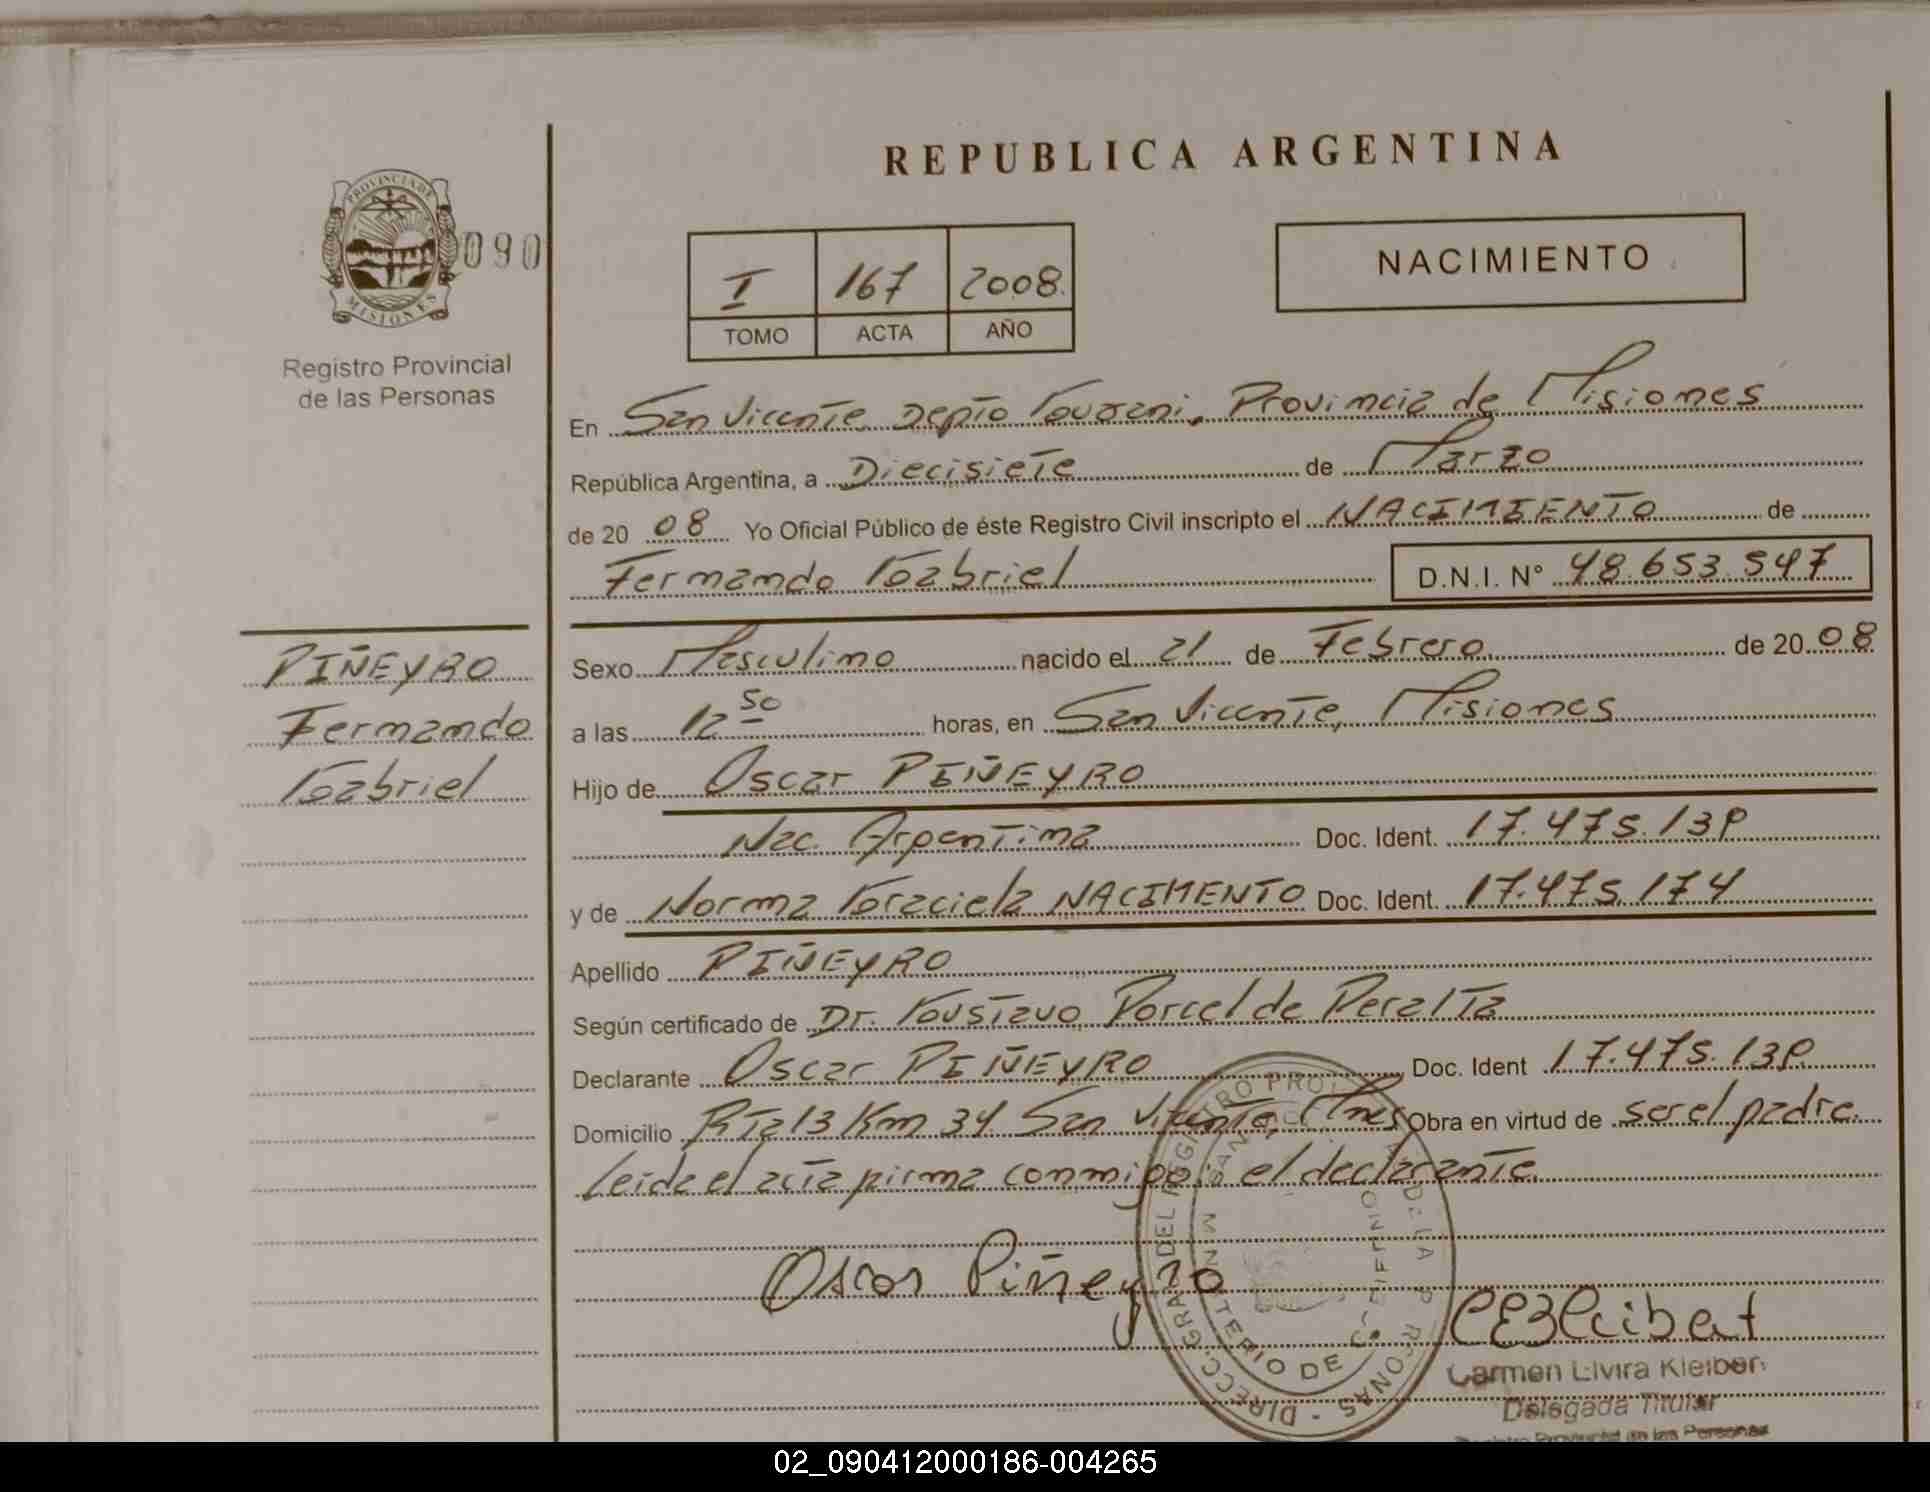 REPUBLICA ARGENTINA
PROVINCIA DE
MISIONES
090
Registro Provincial
de las Personas
I 167 2008.
TOMO ACTA AÑO
NACIMIENTO
En San Vicente Depto Guarani, Provincia de Misiones
República Argentina, a Diecisiete de Marzo
de 20 08 Yo Oficial Público de éste Registro Civil inscripto el NACIMIENTO de
Fernando Gabriel D.N.I. N° 48.653.547
PIÑEYRO
Fernando
Gabriel
Sexo Masculino nacido el 21 de Febrero de 20 08
a las 12 50 horas, en San Vicente, Misiones
Hijo de Oscar PIÑEYRO
Nac. Argentina Doc. Ident. 17.475.139
y de Norma Graciela NACIMENTO Doc. Ident. 17.475.174
Apellido PIÑEYRO
Según certificado de Dr. Gustavo Porcel de Peralta
Declarante Oscar PIÑEYRO Doc. Ident 17.475.139
Domicilio Rta 13 Km 34 San Vicente, Mnes Obra en virtud de ser el padre.
Leida el acta firma conmigo: el declarante.
Oscar Piñeyro
Carmen Elvira Kleiber
Delegada Titular
Registro Provincial de las Personas
02_090412000186-004265